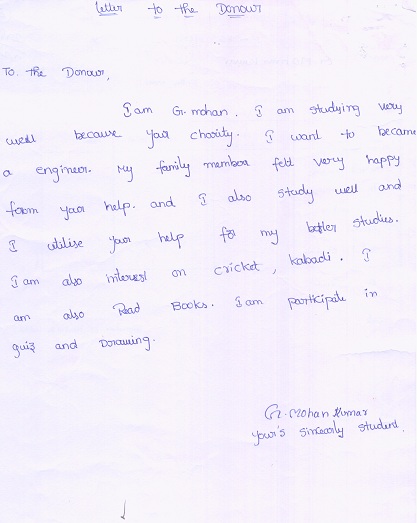 Letter to the Donour
To. The Donour,
I am G. mohan. I am studying very
well because your charity. I want to became
a engineer. My family member feld very happy
form your help. and I also study well and
I utilise your help for my better studies.
I am also interest on cricket, kabadi. I
am also Read Books. I am participate in
quiz and Dorawing.
G. Mohan Kumar
your's sincearly student.